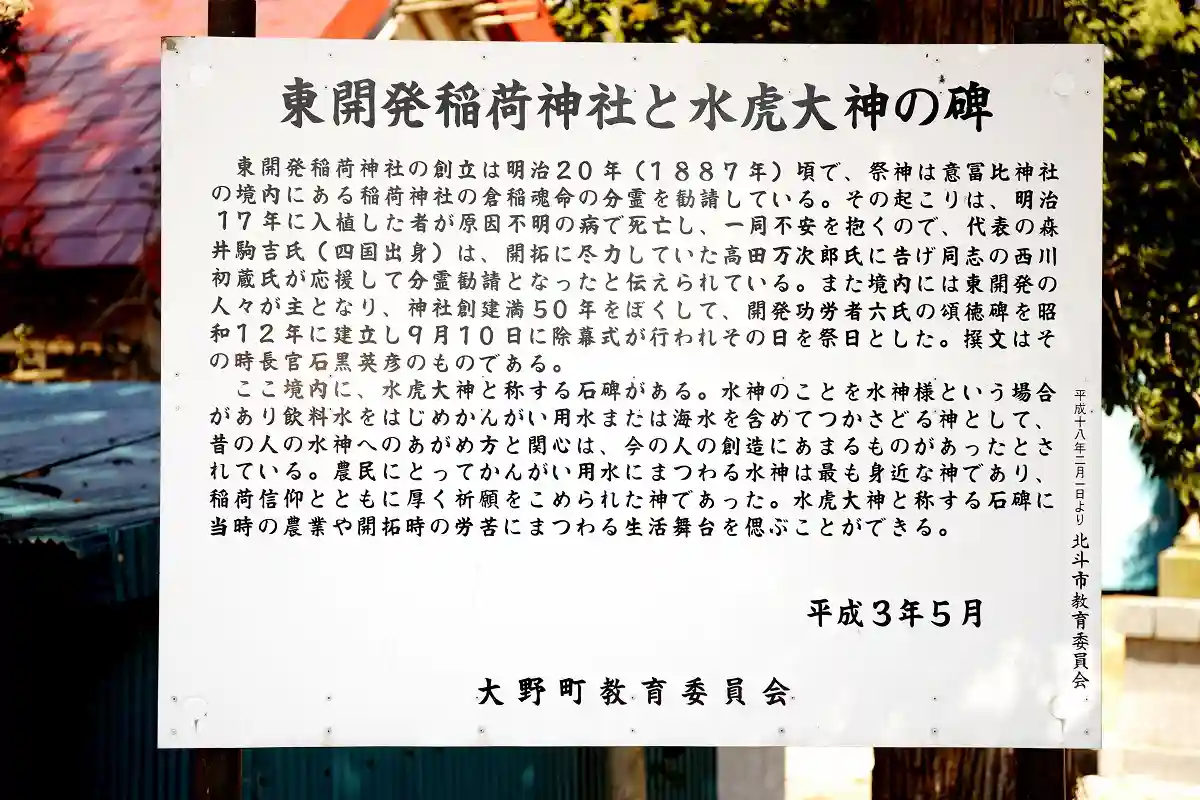 東開発稲荷神社と水虎大神の碑
東開発稲荷神社の創立は明治20年（1887年）頃で、祭神は意冨比神社
の境内にある稲荷神社の倉稲魂命の分霊を勧請している。その起こりは、明治
17年に入植した者が原因不明の病で死亡し、一同不安を抱くので、代表の森
井駒吉氏（四国出身）は、開拓に尽力していた高田万次郎氏に告げ同志の西川
初蔵氏が応援して分霊勧請となったと伝えられている。また境内には東開発の
人々が主となり、神社創建満50年をぼくして、開発功労者六氏の頌徳碑を昭
和12年に建立し9月10日に除幕式が行われその日を祭日とした。撰文はそ
の時長官石黒英彦のものである。
ここ境内に、水虎大神と称する石碑がある。水神のことを水神様という場合
があり飲料水をはじめかんがい用水または海水を含めてつかさどる神として、
昔の人の水神へのあがめ方と関心は、今の人の創造にあまるものがあったとさ
れている。農民にとってかんがい用水にまつわる水神は最も身近な神であり、
稲荷信仰とともに厚く祈願をこめられた神であった。水虎大神と称する石碑に
当時の農業や開拓時の労苦にまつわる生活舞台を偲ぶことができる。
平成3年5月
大野町教育委員会
平成十八年二月一日より 北斗市教育委員会